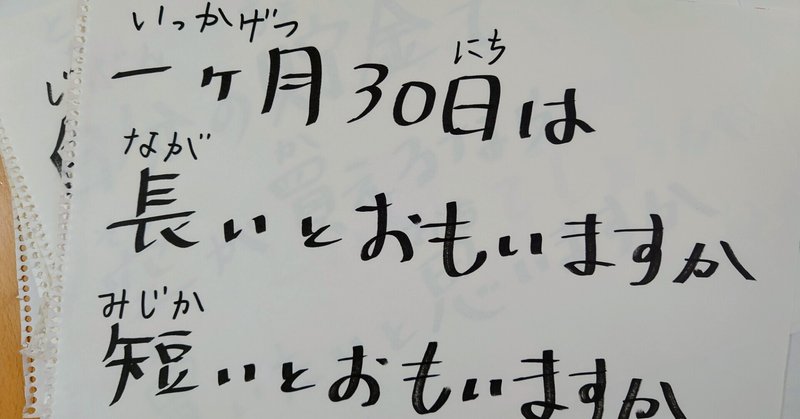 いっかげつ
にち
一ヶ月30日は
なが
長いとおもいますか
みじか
短いとおもいますか